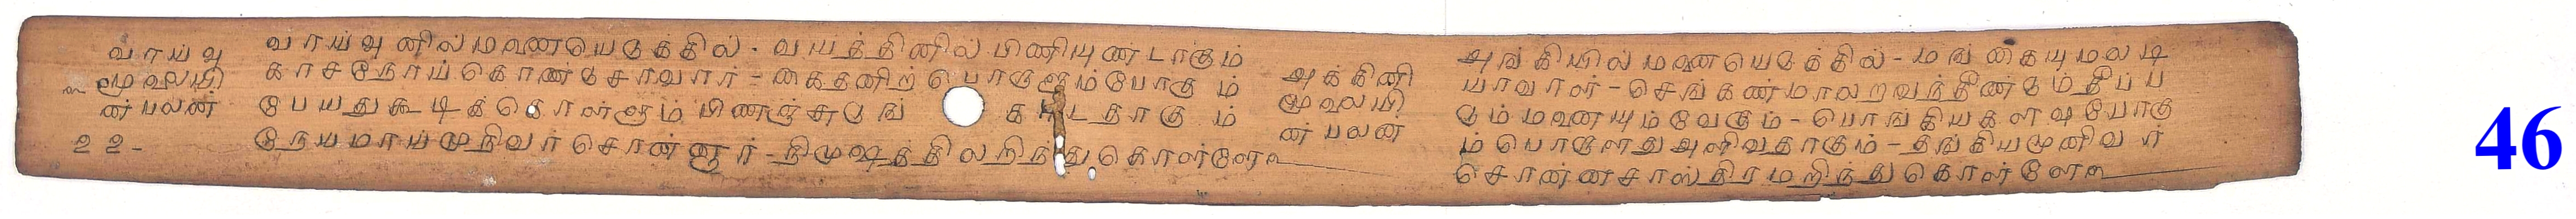 வாய்வு
மூலையி
ன் பலன்
22-
வாய்வுனில்மனையெடுக்கில்- வயத்தினில் பிணியுண்டாகும்
காசநோய்கொண்டுசாவார்-கைதனிற்பொருளும்போகும்
பேயதுகூடிக்கொள்ளும் பிணஞ்சுடுங் காடதாகும்
நேயமாய்முநிவர்சொன்னார்-நிமுஷத்திலறிந்துகொள்ளே
அக்கினி
மூலையி
ன் பலன்
அங்கியில்மனையெடுக்கில்-மங்கையுமலடி
யாவாள்-செங்கண்மாலறவந்தீண்டும்தீப்ப
டும்மனையும்வேகும்-பொங்கிய போகு
ம்பொருளதுஅளிவதாகும்-தங்கியமுனிவர்
சொன்னசாஸ்திரமறிந்துகொள்ளே
46